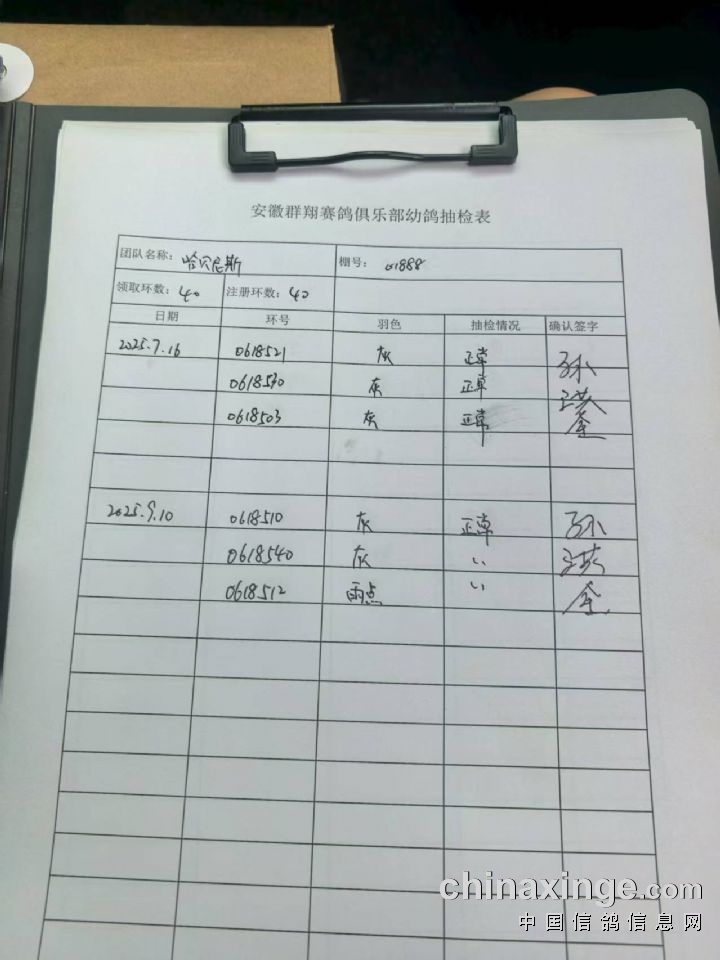 安徽群翔赛鸽俱乐部幼鸽抽检表
团队名称：哈贝尼斯 棚号：01888
领取环数：40 注册环数：40
日期 环号 羽色 抽检情况 确认签字
2025.7.16 0618521 灰 正常 孙
0618530 灰 正常 洪
0618503 灰 正常 奎
2025.9.10 0618510 灰 正常 孙
0618540 灰 〃 洪
0618512 雨点 〃 奎
chinaxinge.com
中国信鸽信息网